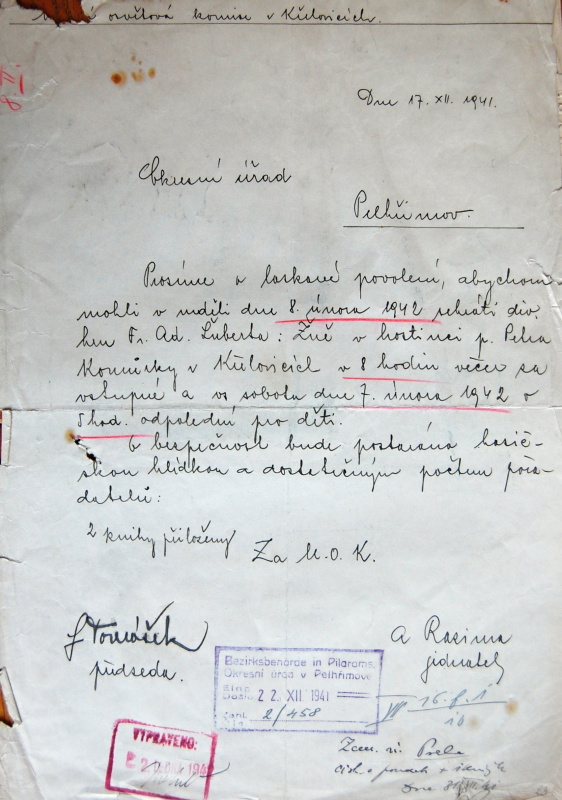 osvětová komise v Křelovicích.
Dne 17. XII. 1941.
Okresní úřad
Pelhřimov.
Prosíme o laskavé povolení, abychom
mohli v neděli dne 8. února 1942 sehráti div.
hru Fr. Ad. Šuberta: Žně v hostinci p. Petra
Komůrky v Křelovicích v 8 hodin večer za
vstupné a vs sobotu dne 7. února 1942 o
5 hod. odpolední pro děti.
O bezpečnost bude postaráno hasič-
skou hlídkou a dostatečným počtem pořa-
datelů:
2 knihy přiloženy
Za M. O. K.
J Tomášek
předseda.
A Rasima
jednatel
Bezirksbehörde in Pilgrams.
Okresní úřad v Pelhřimově
Eing.
Došlo 22. XII. 1941
2/458
VI 16-8-1
10
VYPRAVENO: